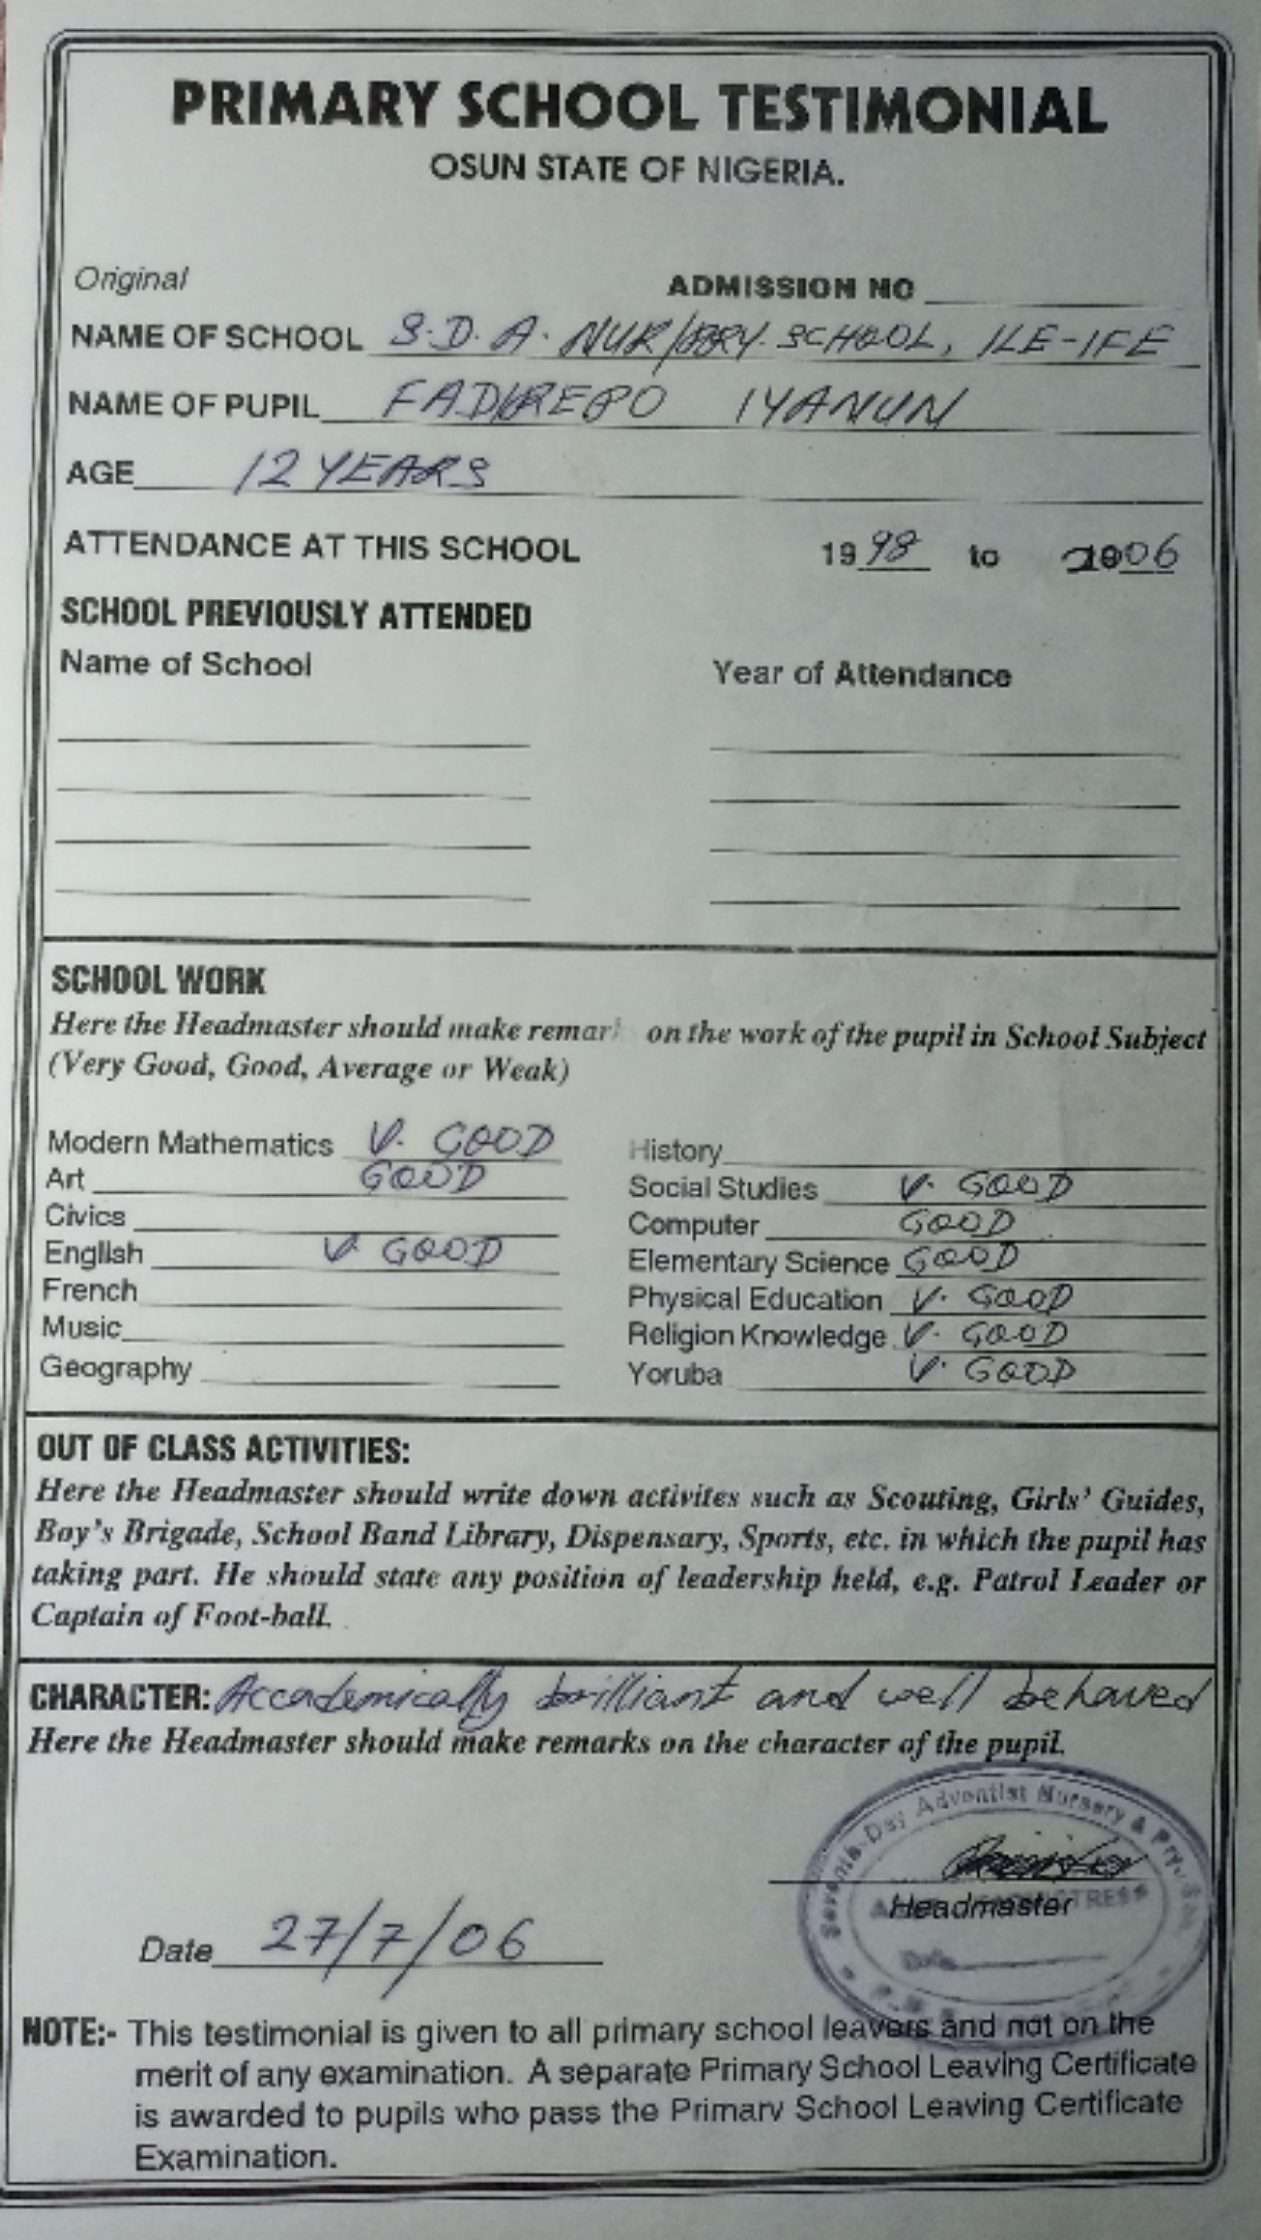 PRIMARY SCHOOL TESTIMONIAL
OSUN STATE OF NIGERIA.
Original ADMISSION NO
NAME OF SCHOOL S.D.A. NUR/PRY. SCHOOL, ILE-IFE
NAME OF PUPIL FADIREPO IYANUN
AGE 12 YEARS
ATTENDANCE AT THIS SCHOOL 1998 to 2006
SCHOOL PREVIOUSLY ATTENDED
Name of School Year of Attendance
SCHOOL WORK
Here the Headmaster should make remark on the work of the pupil in School Subject
(Very Good, Good, Average or Weak)
Modern Mathematics V. GOOD History
Art GOOD Social Studies V. GOOD
Civics Computer GOOD
English V. GOOD Elementary Science GOOD
French Physical Education V. GOOD
Music Religion Knowledge V. GOOD
Geography Yoruba V. GOOD
OUT OF CLASS ACTIVITIES:
Here the Headmaster should write down activites such as Scouting, Girls' Guides,
Boy's Brigade, School Band Library, Dispensary, Sports, etc. in which the pupil has
taking part. He should state any position of leadership held, e.g. Patrol Leader or
Captain of Foot-ball.
CHARACTER: Accademically brilliant and well behaved
Here the Headmaster should make remarks on the character of the pupil.
Seventh-Day Adventist Nursery & Pry. Sch
Headmaster
Date
Date 27/7/06
NOTE:- This testimonial is given to all primary school leavers and not on the
merit of any examination. A separate Primary School Leaving Certificate
is awarded to pupils who pass the Primary School Leaving Certificate
Examination.